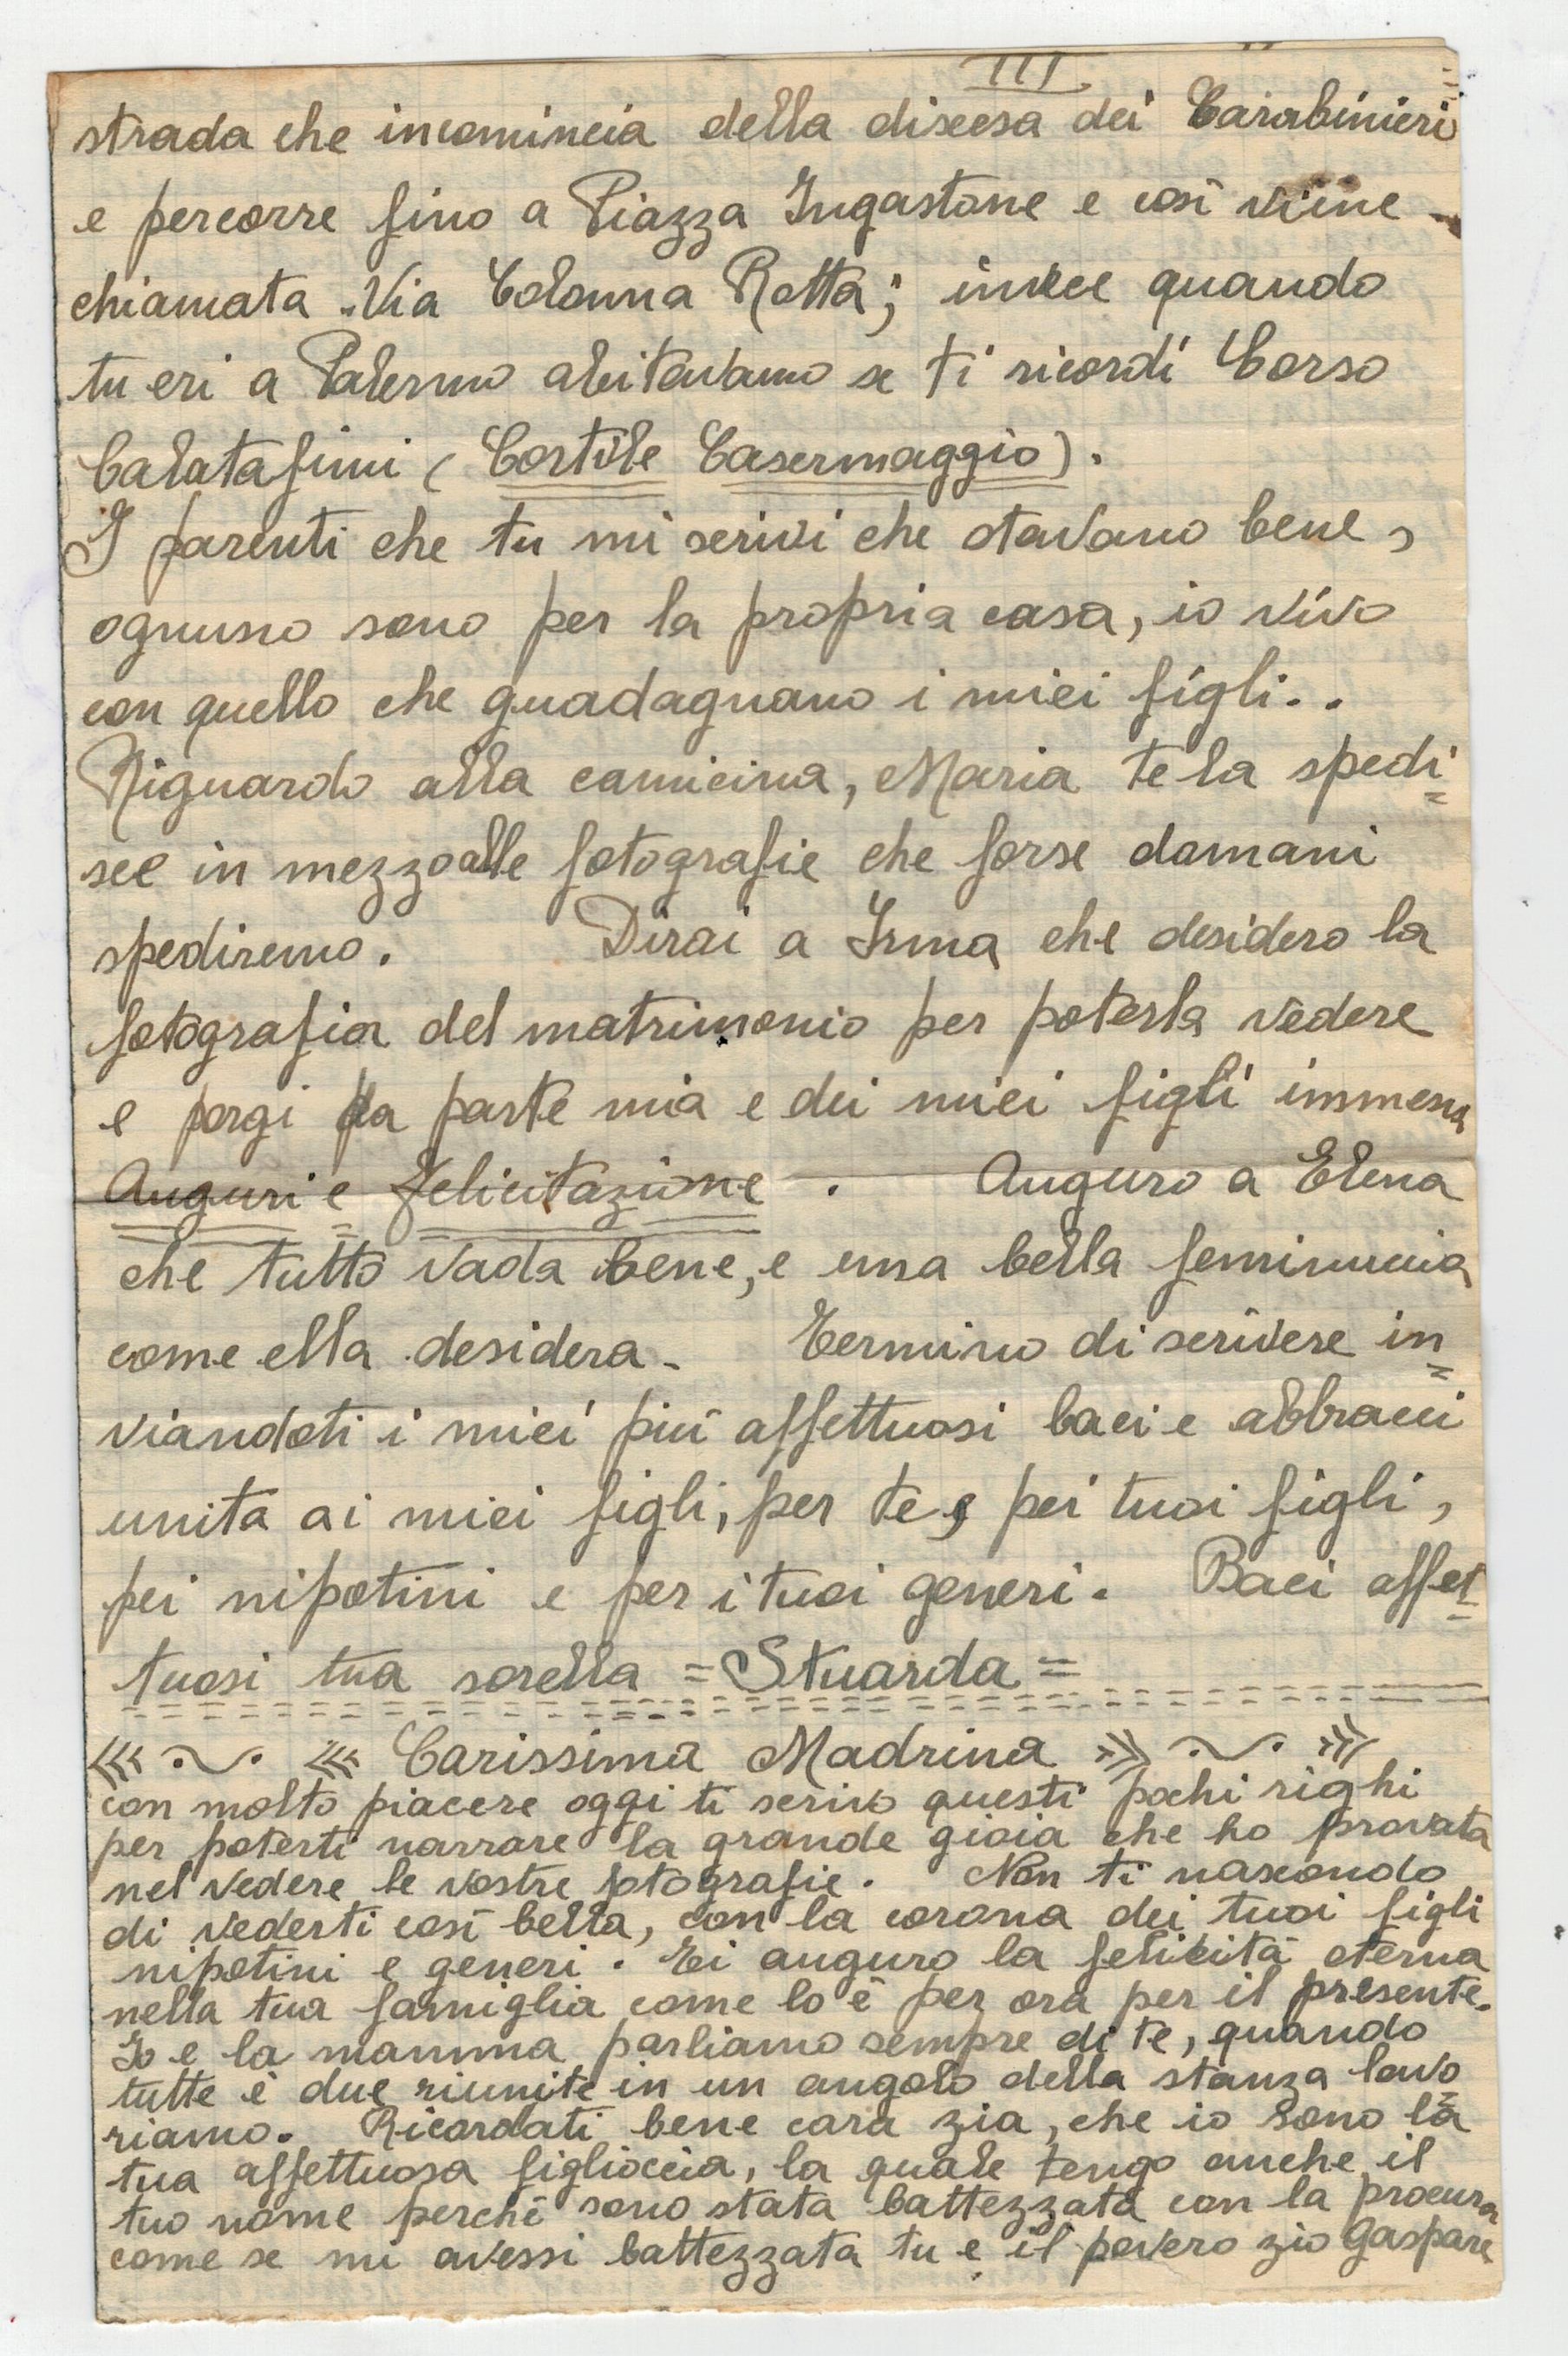 III
strada che incomincia della discesa dei Carabinieri
e percorre fino a Piazza Ingastone e così viene
chiamata Via Colonna Rotta; invece quando
tu eri a Palermo abitavamo se ti ricordi Corso
Calatafimi (Cortile Casermaggio).
I parenti che tu mi scrivi che stavano bene,
ognusno sono per la propria casa, io vivo
con quello che guadagnano i miei figli..
Riguardo alla camicina, Maria te la spedi=
sce in mezzo alle fotografie che forse domani
spediremo. Dirai a Irma che desidero la
fotografia del matrimonio per poterla vedere
e porgi da parte mia e dei miei figli immensa
Auguri e Felicitazione. Auguro a Elena
che tutto vada bene, e una bella femminuccia
come ella desidera. Termino di scrivere in=
viandoti i miei più affettuosi baci e abbracci
unita ai miei figli, per te, pei tuoi figli,
pei nipotini e per i tuoi generi. Baci affet=
tuosi tua sorella =Stuarda=
Carissima Madrina
con molto piacere oggi ti scrivo questi pochi righi
per poterti narrare la grande gioia che ho provata
nel vedere le vostre fotografie. Non ti nascondo
di vederti così bella, con la corona dei tuoi figli
nipotini e generi. Ti auguro la felicità eterna
nella tua famiglia come lo è per ora per il presente.
Io e la mamma parliamo sempre di te, quando
tutte è due riunite in un angolo della stanza lavo=
riamo. Ricordati bene cara zia, che io sono la
tua affettuosa figlioccia, la quale tengo anche il
tuo nome perché sono stata battezzata con la procura
come se mi avessi battezzata tu e il povero zio Gaspare